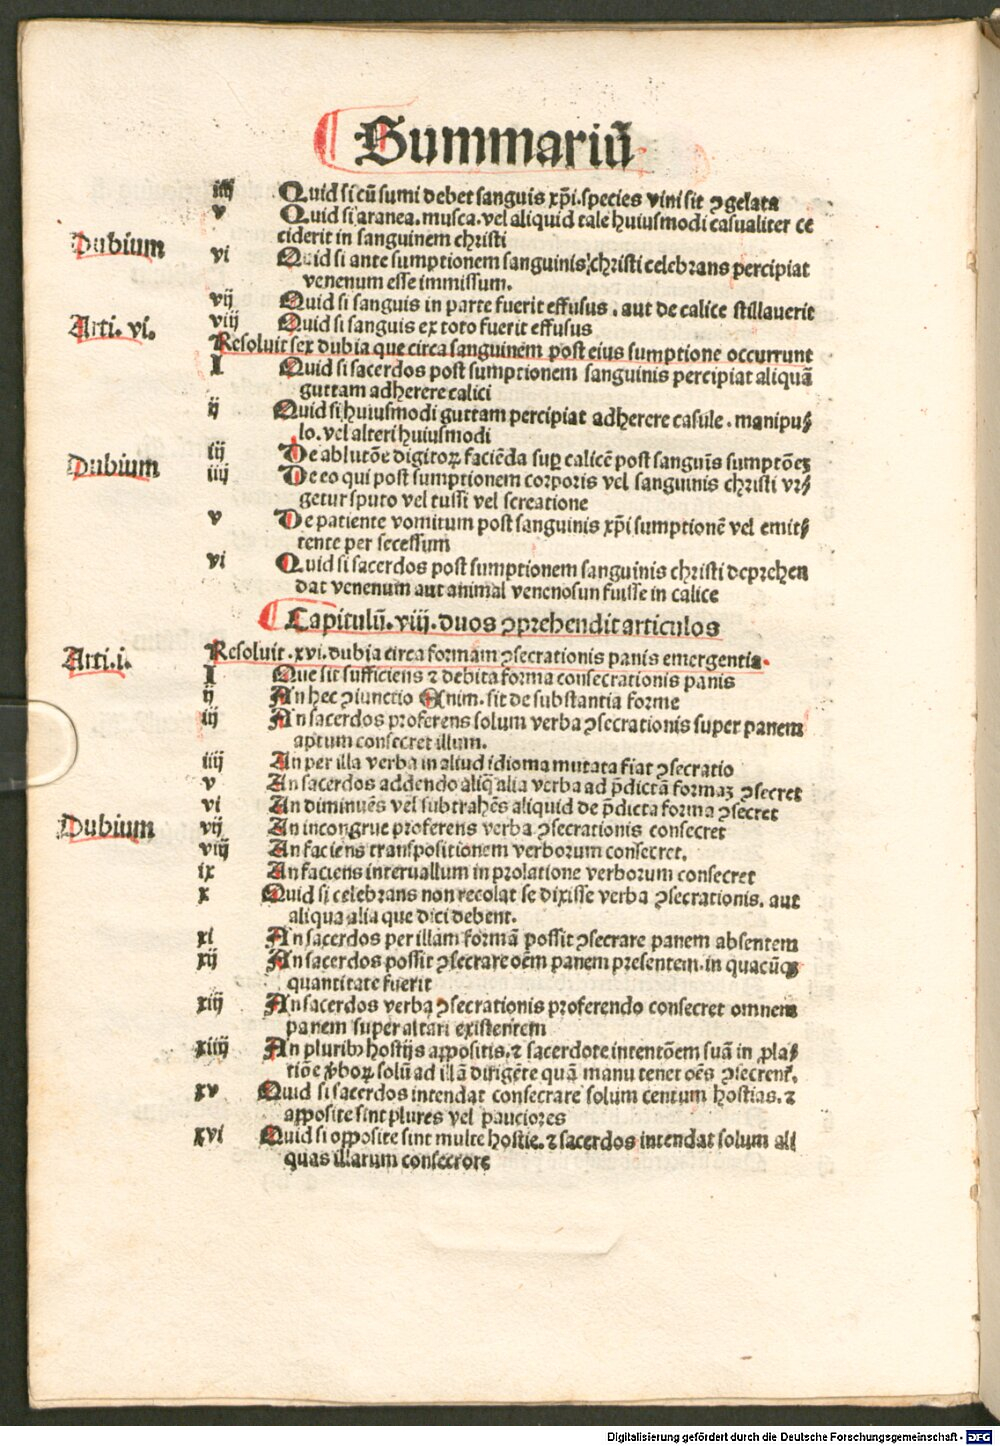 Summariū
iiij Quid si cū sumi debet sanguis xp̄i. species vini sit ꝯgelata
v Quid si aranea. musca. vel aliquid tale huiusmodi casualiter ce
ciderit in sanguinem christi
Dubium
vi Quid si ante sumptionem sanguinis christi celebrans percipiat
venenum esse immissum.
vij Quid si sanguis in parte fuerit effusus. aut de calice stillauerit
Arti. vi.
viij Quid si sanguis ex toto fuerit effusus
Resoluit sex dubia que circa sanguinem post eius sumptione occurrunt
I Quid si sacerdos post sumptionem sanguinis percipiat aliquā
guttam adherere calici
ij Quid si huiusmodi guttam percipiat adherere casule. manipu⸗
lo. vel alteri huiusmodi
Dubium
iij De ablutōe digitoꝝ faciēda suꝑ calicē post sanguīs sumptōeꝫ
iiij De eo qui post sumptionem corporis vel sanguinis christi vr⸗
getur sputo vel tussi vel screatione
v De patiente vomitum post sanguinis xp̄i sumptionē vel emit⸗
tente per secessum
vi Quid si sacerdos post sumptionem sanguinis christi deprehen
dat venenum aut animal venenosun fuisse in calice
Capitulū. viii. duos ꝯprehendit articulos
Arti. i.
Resoluit. xvi. dubia circa formam ꝯsecrationis panis emergentia.
I Que sit sufficiens ⁊ debita forma consecrationis panis
ij An hec ꝯiunctio Enim. sit de substantia forme
iij An sacerdos proferens solum verba ꝯsecrationis super panem
aptum consecret illum.
iiij An per illa verba in aliud idioma mutata fiat ꝯsecratio
v An sacerdos addendo aliq̄ alia verba ad p̄dictā formaꝫ ꝯsecret
vi An diminuēs vel subtrahēs aliquid de p̄dicta forma ꝯsecret
Dubium
vij An incongrue proferens verba ꝯsecrationis consecret
viij An faciens transpositionem verborum consecret.
ix An faciens interuallum in prolatione verborum consecret
x Quid si celebrans non recolat se dixisse verba ꝯsecrationis. aut
aliqua alia que dici debent.
xi An sacerdos per illam formā possit ꝯsecrare panem absentem
xij An sacerdos possit ꝯsecrare oēm panem presentem. in quacūqꝫ
quantitate fuerit
xiij An sacerdos verba ꝯsecrationis proferendo consecret omnem
panem super altari existentem
xiiij An pluribꝰ hostijs appositis. ⁊ sacerdote intentōem suā in ꝓla⸗
tiōe v̄boꝝ solū ad illā dirigēte quā manu tenet oēs ꝯsecrent.
xv Quid si sacerdos intendat consecrare solum centum hostias. ⁊
apposite sint plures vel pauciores
xvi Quid si opposite sint multe hostie. ⁊ sacerdos intendat solum ali
quas illarum consecrore
Digitalisierung gefördert durch die Deutsche Forschungsgemeinschaft - DFG